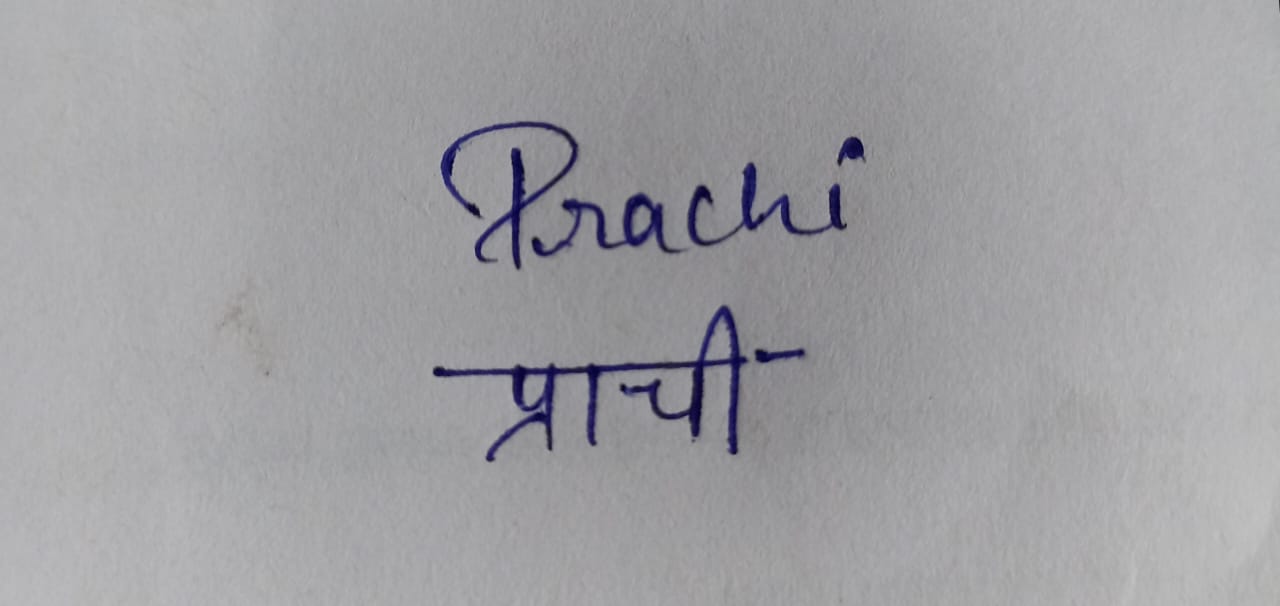 Prachi
प्राची